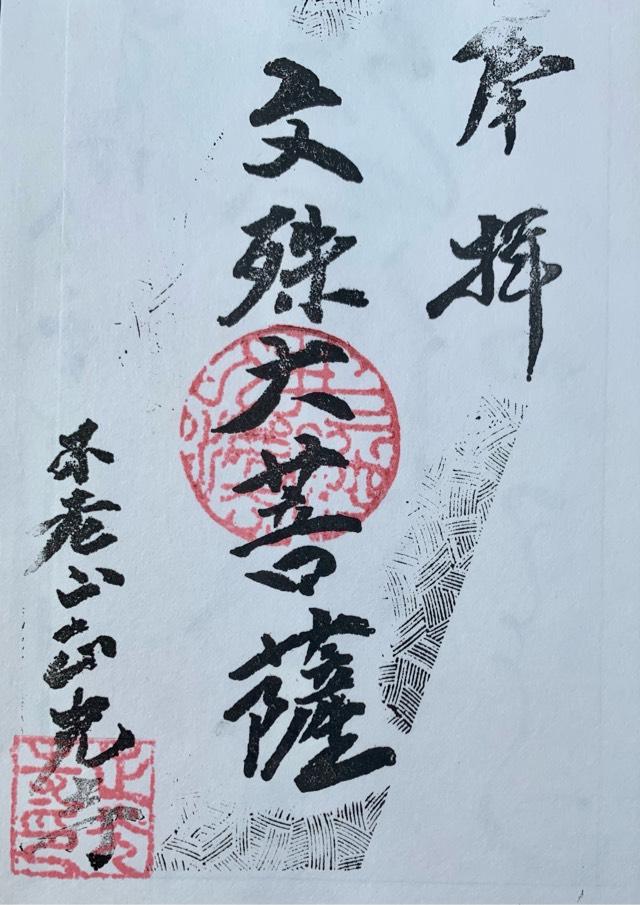 奉拝
文殊大菩薩
不老山正光寺